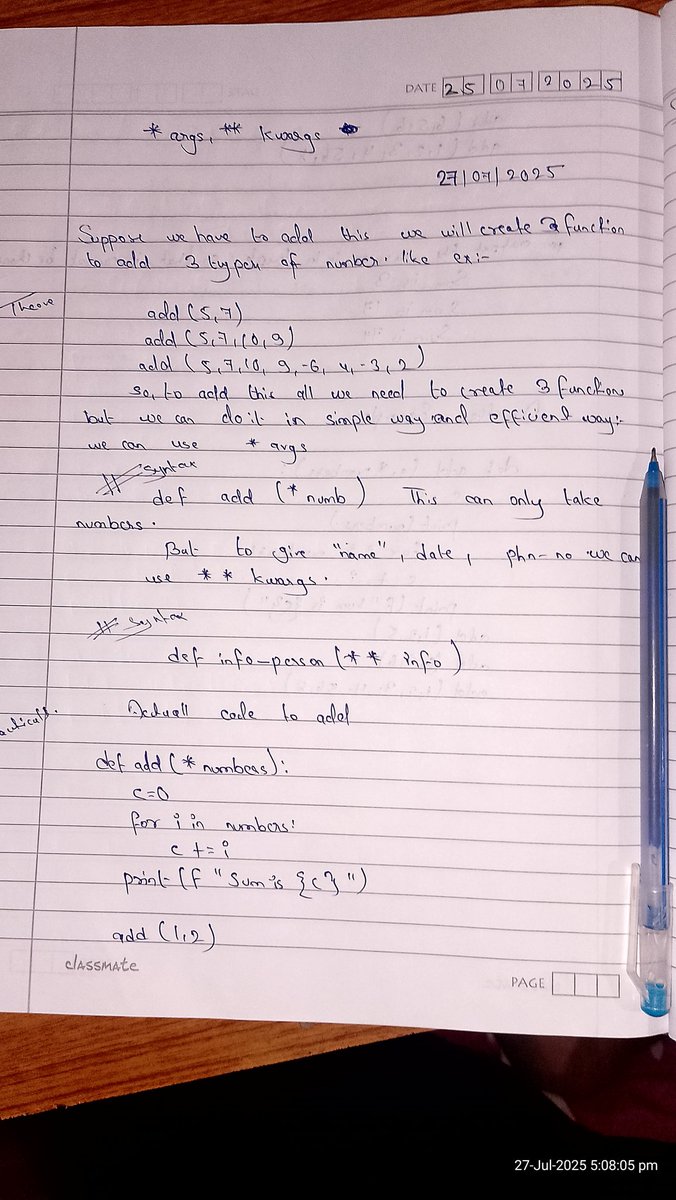 DATE 25 07 2025
* args, ** kwargs
27/07/2025
Suppose we have to add this we will create 3 function
to add 3 types of number. like ex:-
Theore
add (5,7)
add (5,7,10,9)
add (5,7,10, 9,-6, 4, -3, 2)
so, to add this all we need to create 3 functions
but we can do it in simple way and efficient way:-
we can use * args
# Syntax
def add (* numb) This can only take
numbers.
But to give "name", date, phn-no we can
use * * kwargs.
# Syntax
def info-person (* * info)
Actuall code to add
def add (* numbers):
c=0
for i in numbers:
c += i
print (f "Sum is {c} ")
add (1,2)
classmate
PAGE
27-Jul-2025 5:08:05 pm